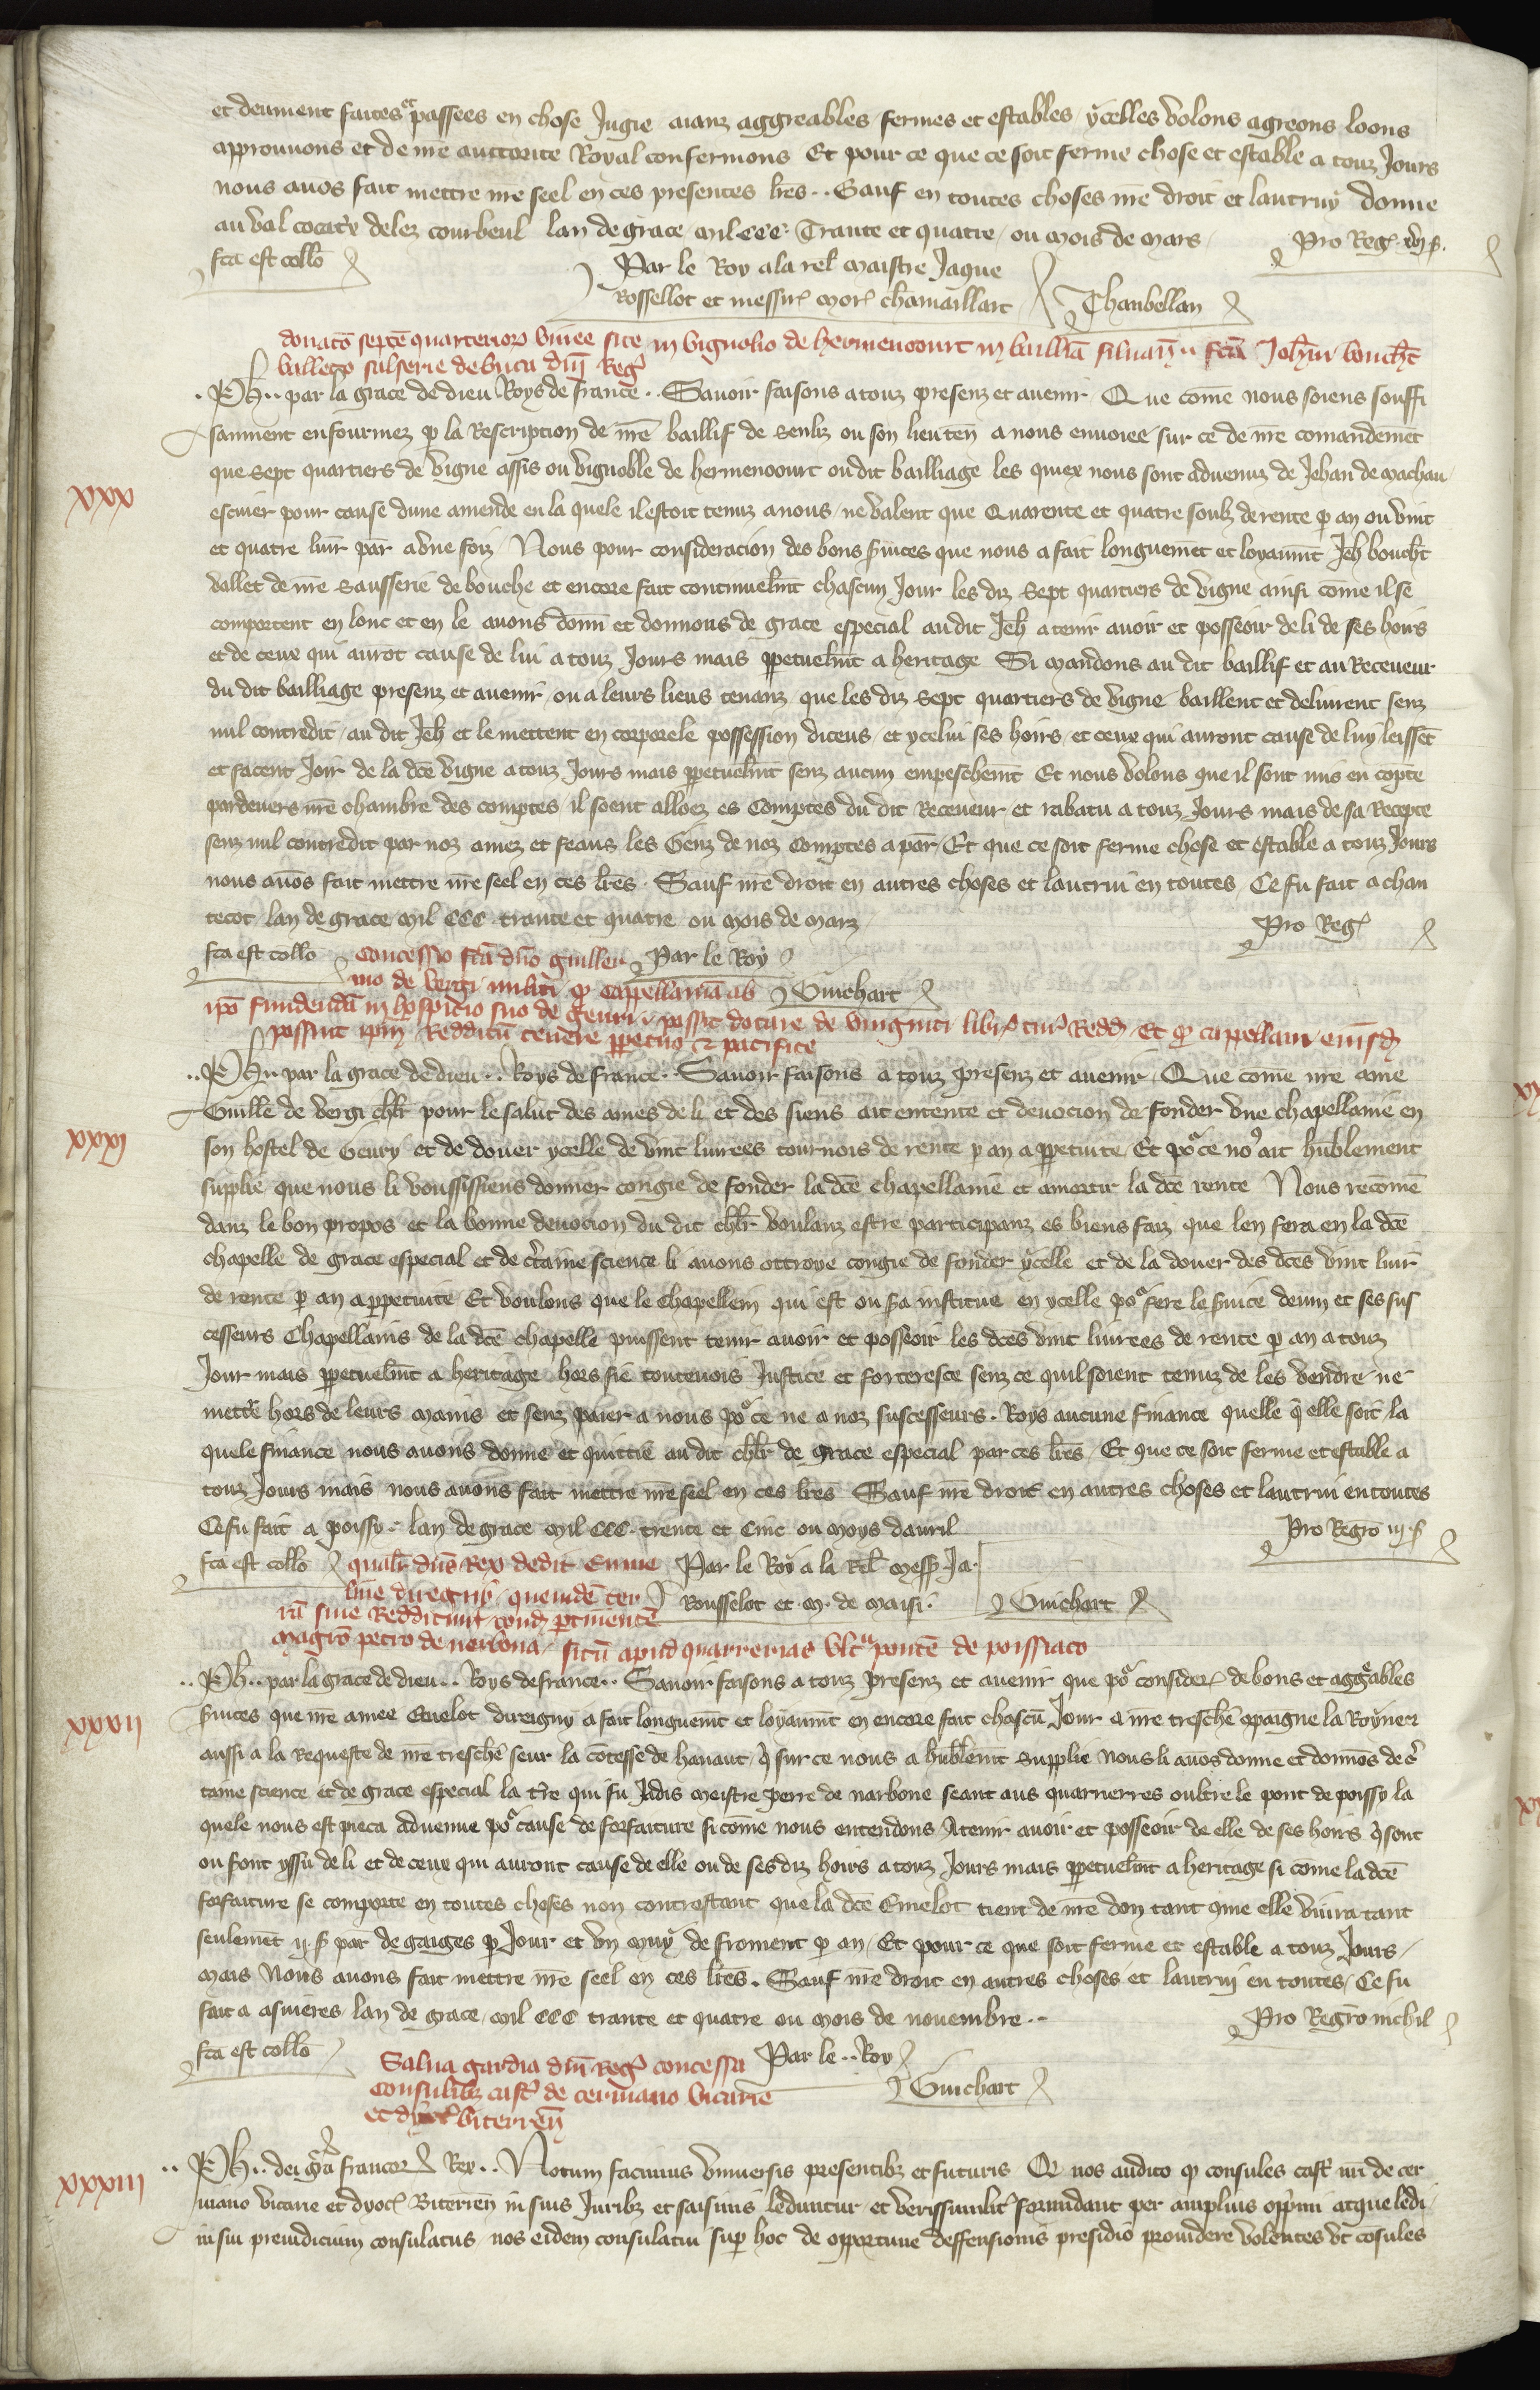 et deument faites et passees en chose Jugie aianz aggreables fermes et estables ycelles volons agreons loons
approuvons et de nr̄e auctorite Royal confermons Et pour ce que ce soit ferme chose et estable a touz Jours
nous avōs fait mettre nr̄e seel en ces presentes lr̄es .. Sauf en toutes choses nr̄e droit et lautruy donne
au val delez courbeul lan de grace mil CCC Trante et quatre ou mois de mars
Pro Reg
fc̄a est collō
Par le Roy a la rel̄ maistre Jaque
Rossellot et messir chamaillart
Chanbellan
donatō septē quarterior vinee site in vignolio de hermencourt in bailliā silvan̄ fcā Joh̄ni bouch̄t
valleto salserie de buca dn̄i Reg
xxx
. Ph̄ .. par la grace de dieu Roys de france .. Savoir faisons a touz presenz et avenir Que come nous soiens souffi
sanment enfourmez p la Rescription de nr̄e baillif de senliz ou son lieuten̄ a nous envoiee sur ce de nr̄e comandemēt
que sept quartiers de vigne assis ou vignoble de hermencourt ou dit bailliage les quiex nous sont advenuz de Jehan de machau
escuier pour cause dune amende en la quele il estoit tenuz a nous ne valent que Quarente et quatre soulz de rente p an ou vint
et quatre livr̄ par a une foiz Nous pour consideracion des bons s̄vices que nous a fait longuemēt et loyaumēt Jeh̄ bouch̄t
vallet de nr̄e sausserie de bouche et encore fait continuelm̄t chascun Jour les diz sept quartiers de vigne ainsi come il se
comportent en lonc et en le avons donn̄ et donnons de grace especial au dit Jeh̄ a tenir avoir et posseoir de li de ses hoirs
et de ceux qui aurōt cause de lui a touz Jours mais ppetuelm̄t a heritage Si mandons au dit baillif et au Receveur
du dit bailliage presenz et avenir ou a leurs lieus tenanz que les diz sept quartiers de vigne baillent et delivrent senz
nul contredit au dit Jeh̄ et le mettent en corporele possession diceus et ycelui ses hoirs et ceux qui auront cause de luy leissēt
et facent Joir de la dcē vigne a touz Jours mais ppetuelm̄t senz aucun empeschem̄t Et nous volons que il sont mis en cōpte
pardevers nr̄e chambre des comptes il soient alloez es Comptes du dit Receveur et rabatu a touz Jours mais de sa Recepte
senz nul contredit par noz amez et feaus les Genz de noz Comptes a par̄ Et que ce soit ferme chose et estable a touz Jours
nous avōs fait mettre nr̄e seel en ces lr̄es . Sauf nr̄e droit en autres choses et lautrui en toutes Ce fu fait a chan
tecot lan de grace mil CCC trante et quatre ou mois de marz
Pro Reg
fc̄a est collō
Par le Roy
Guichart
Concessio fcā dn̄o guiller
mo de vergi militi p cappellaniā ab
ip̄o fundendā in hospicio suo de gevri possit dotare de viuginti libr tur Redd Et p cappellani eiusd
possint ip̄m Redditū tenere ppetuo et pacifice
xxxi
.. Ph̄ .. par la grace de dieu .. Roys de france .. Savoir faisons a touz presenz et avenir Que come nr̄e ame
Guill̄e de vergi chl̄r pour le salut des ames de li et des siens ait entente et devocion de fonder une chapellanie en
son hostel de Gevry et de douer ycelle de vint livrees tournois de rente p an a ppetuite Et po ce no ait hūblement
supplie que nous li voussissiens donner congie de fonder la dcē chapellanie et amortir la dcē rente Nous recomē
danz le bon propos et la bonne devocion du dit chl̄r voulanz estre participanz es biens faiz que len fera en la dcē
chapelle de grace especial et de c̄taine science li avons ottroye congie de fonder ycelle et de la douer des dcēs vint livr̄
de rente p an a ppetuite Et voulons que le chapellein qui est ou s̄a institue en ycelle po fere le s̄vice devin et ses sus
cesseurs Chapellains de la dcē chapelle puissent tenir avoir et posseoir les dcēs vint livrees de rente p an a touz
Jour mais ppetuelm̄t a heritage hors fie toutevois Justice et forteresce senz ce quil soient tenuz de les vendre ne
mettr̄ hors de leurs mains et senz paier a nous po ce ne a noz suscesseurs . Roys aucune finance quelle q̄ elle soit la
quele finance nous avons donne et quittie au dit chl̄r de grace especial par ces lr̄es Et que ce soit ferme et estable a
touz Jours mais nous avons fait mettre nr̄e seel en ces lr̄es Sauf nr̄e droit en autres choses et lautrui en toutes
Ce fu fait a poissy lan de grace mil CCC . trente et Cinc ou moys davril
Pro Regrō iij s̄
fc̄a est collō
Par le Roy a la Rel̄ mess Ja.
Rousselot et m. de maisi.
Guichart
qualr̄ dn̄s Rex dedit Eme
line direguy quendē ter
rā sive Redditum cond ptinentē
Magrō petro de nerbona sitū apud quarrerias ult pontē de poissiaco
xxxii
.. Ph̄ .. par la grace de dieu .. Roys de france .. Savoir faisons a touz presenz et avenir que po consider de bons et aggeables
s̄vices que nr̄e amee Emelot direigny a fait longuem̄t et loyaum̄t en encore fait chascū Jour a nr̄e treschē cōpaigne la Royne et
aussi a la Requeste de nr̄e treschē seur la cōtesse de hanaut q̄ sur ce nous a hūblem̄t supplie nous li avōs donne et donnōs de c̄
taine science et de grace especial la tr̄e qui fu Jadis Meistre perre de narbone seant aus quarrierres oultre le pont de poissy la
quele nous est pieca advenue po cause de forfaiture si come nous entendons A tenir avoir et posseoir de elle de ses hoirs q̄ sont
ou sont yssū de li et de ceux qui auront cause de elle ou de ses diz hoirs a touz Jours mais ppetuelm̄t a heritage si come la dcē
forfaiture se comporte en toutes choses non contrestant que la dcē Emelot tient de nr̄e don tant cōme elle vivra tant
seulemēt ij s̄ par de gaiges p Jour et un muy de froment p an Et pour ce que soit ferme et estable a touz Jours
mais Nous avons fait mettre nr̄e seel en ces lr̄es . Sauf nr̄e droit en autres choses et lautrui en toutes Ce fu
fait a asnieres lan de grace mil CCC trante et quatre ou mois de novembre ..
Pro Regrō nichil
fc̄a est collō
Par le .. Roy
Guichart
Salva gardia dn̄i Reg concessa
Consulibz cast de cervиano vicarie
et dyoc̄ biterren̄
xxxiii
.. Ph̄ .. dei gr̄a francor Rex .. Notum facimus universis presentibz et futuris Q nos audito q consules cast nr̄i de cer
viano vicarie et dyoc̄ Biterren̄ in suis Juribz et saisinis leduntur et verissimilit formidant per amplius opp̄mi atque ledi
in sui preiudicium consulatus nos eidem consulatui sup hoc de opportune deffensionis presidio providere volentes ut cōsules